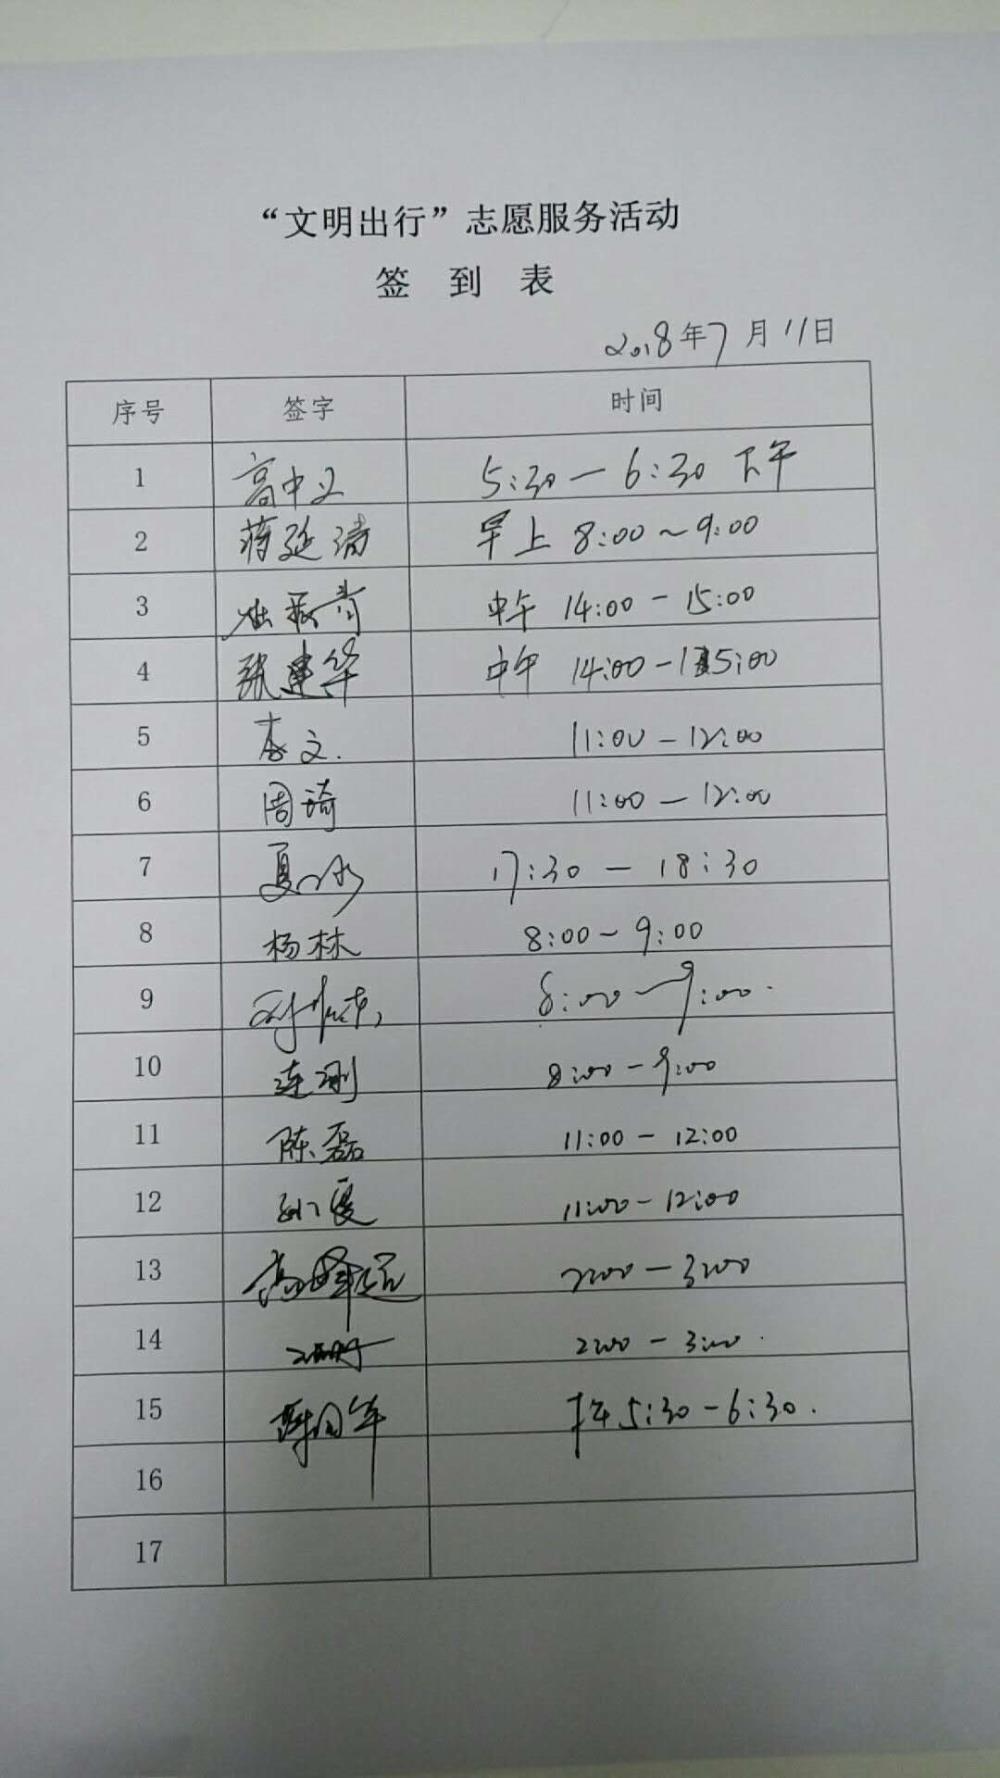 “文明出行”志愿服务活动
签 到 表
2018年7月11日
序号 签字 时间
1 高中义 5:30—6:30 下午
2 蒋延清 早上 8:00~9:00
3 中午 14:00-15:00
4 张建华 中午 14:00-15:00
5 李文. 11:00-12:00
6 周琦 11:00-12:00
7 夏冰 17:30-18:30
8 杨林 8:00-9:00
9 8:00-9:00.
10 连刚 8:00-9:00
11 陈磊 11:00-12:00
12 11:00-12:00
13 高峰远 2:00-3:00
14 2:00-3:00.
15 下午5:30-6:30.
16
17